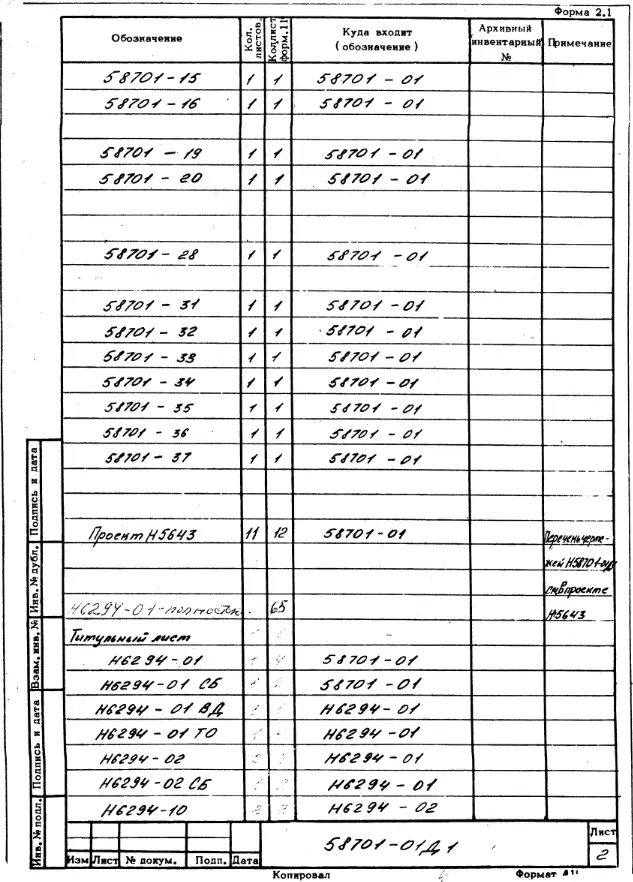 Форма 2.1
Обозначение Кол. листов Кол.лист форм.11 Куда входит (обозначение) Архивный инвентарный № Примечание
58701-15 1 1 58701-01
58701-16 1 1 58701-01
58701-19 1 1 58701-01
58701-20 1 1 58701-01
58701-28 1 1 58701-01
58701-31 1 1 58701-01
58701-32 1 1 58701-01
58701-33 1 1 58701-01
58701-34 1 1 58701-01
58701-35 1 1 58701-01
58701-36 1 1 58701-01
58701-37 1 1 58701-01
Проект Н5643 11 12 58701-01 Перечень черте-
жей Н58701-
см в проекте
Н6294-01-полностью 65 Н5643
Титульный лист
Н6294-01 58701-01
Н6294-01 СБ 58701-01
Н6294-01 ВД Н6294-01
Н6294-01 ТО Н6294-01
Н6294-02 Н6294-01
Н6294-02 СБ Н6294-01
Н6294-10 Н6294-02
Подпись и дата
Инв. № дубл.
Взам. инв. №
Подпись и дата
Инв. № подл.
58701-01Д1
Лист
2
Изм Лист № докум. Подп. Дата
Копировал Формат 11